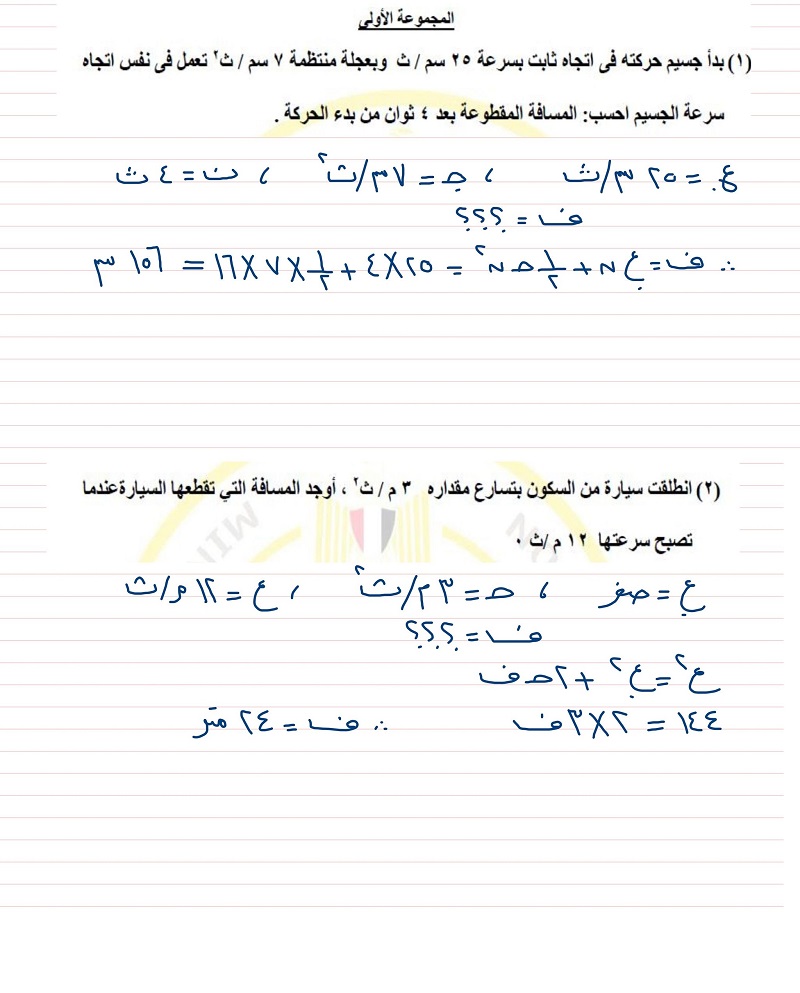 المجموعة الأولى
(١) بدأ جسيم حركته فى اتجاه ثابت بسرعة ٢٥ سم / ث وبعجلة منتظمة ٧ سم / ث٢ تعمل فى نفس اتجاه
سرعة الجسيم احسب: المسافة المقطوعة بعد ٤ ثوان من بدء الحركة .
ع. = ٢٥ سم/ث ، جـ = ٧ سم/ث٢ ، ن = ٤ ث
ف = ؟؟؟
∴ ف = ع. ن + ١/٢ حـ ن٢ = ٢٥ × ٤ + ١/٢ × ٧ × ١٦ = ١٥٦ سم
(٢) انطلقت سيارة من السكون بتسارع مقداره ٣ م / ث٢ ، أوجد المسافة التي تقطعها السيارة عندما
تصبح سرعتها ١٢ م /ث ٠
ع. = صفر ، حـ = ٣ م/ث٢ ، ع = ١٢ م/ث
ف = ؟؟؟
ع٢ = ع.٢ + ٢ حـ ف
١٤٤ = ٢ × ٣ ف ∴ ف = ٢٤ متر